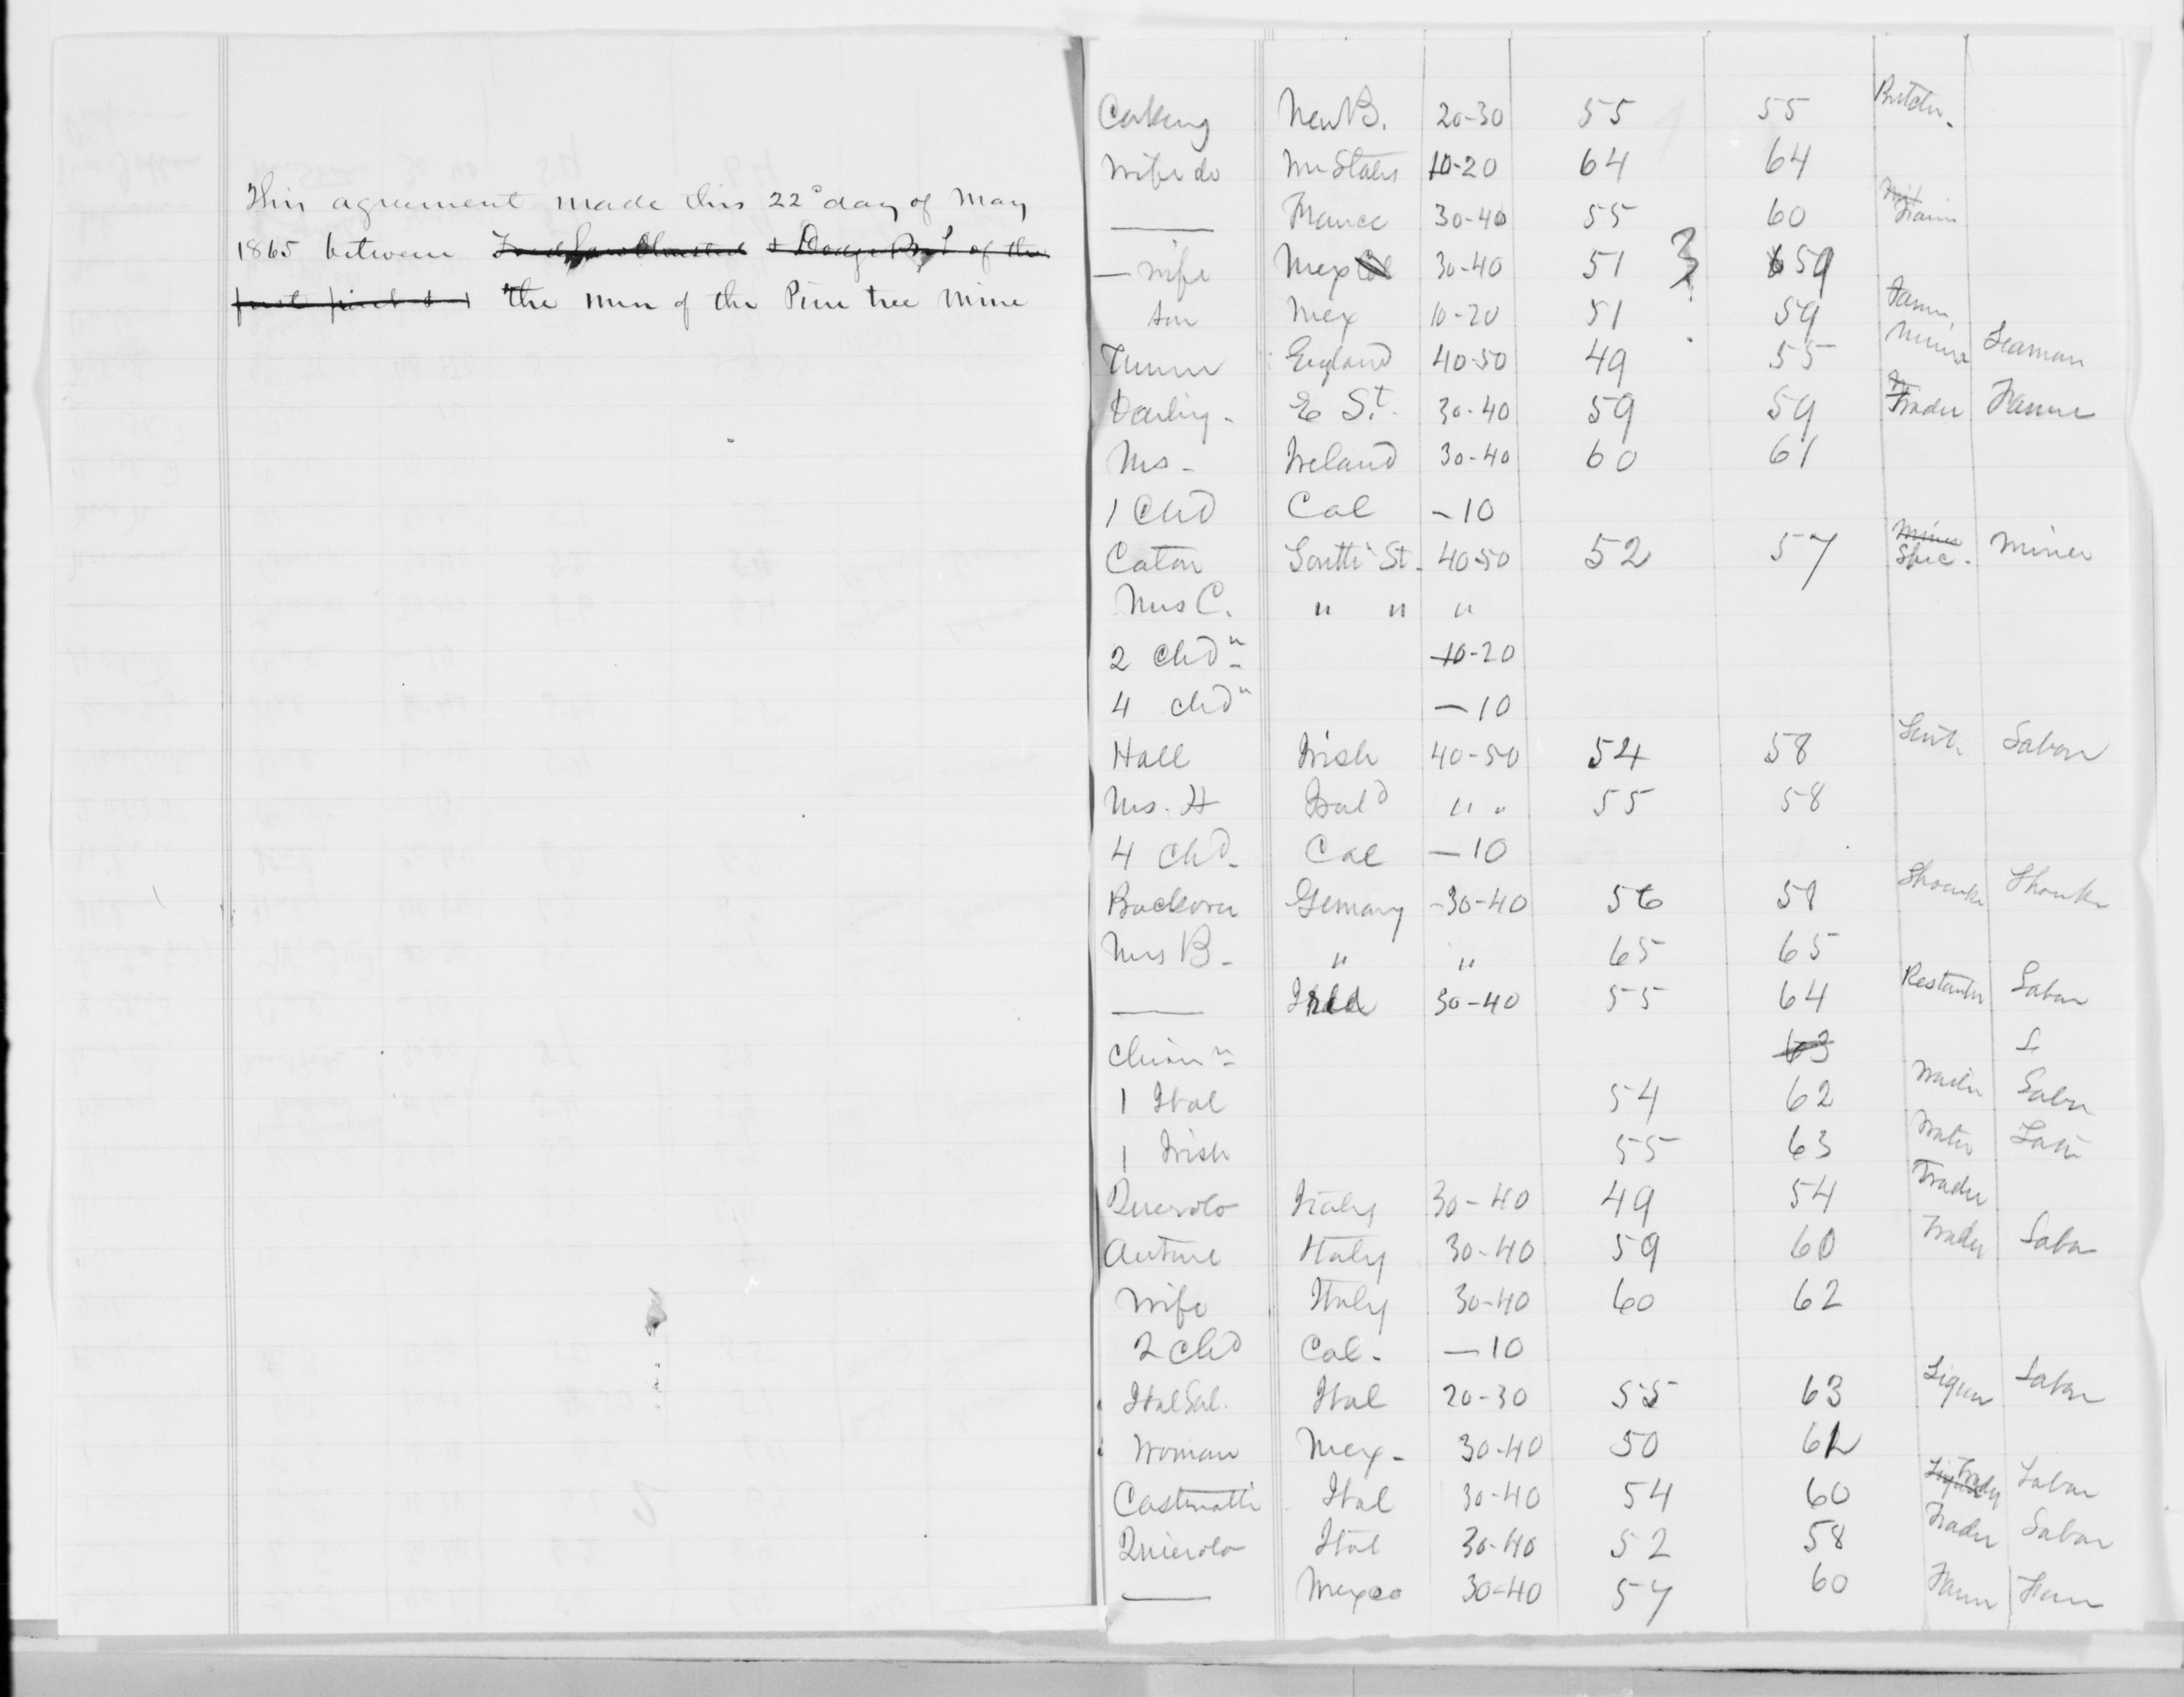 This agreement made this 22d day of May
1865 between Fred Law Olmsted & Dodge Bro of the
first part & the men of the Pine tree Mine
New B. 20-30 55 55 Butcher.
Wife do Nn States 10-20 64 64
— France 30-40 55 60
— Wife Mex 30-40 51 59
Son Mex 10-20 51 59 Farm.
England 40-50 49 55 Miner Seaman
Darling - E St. 30-40 59 59 Trader Farmer
Mrs - Ireland 30-40 60 61
1 Chd Cal - 10
Caton South St. 40-50 52 57 Miner Spec. Miner
Mrs C. " " "
2 Chdn 10-20
4 Chdn - 10
Hall Irish 40-50 54 58 Labor
Mrs. H " " 55 58
4 Chd - Cal - 10
Germany - 30-40 56 58 Shoemkr Shomkr
Mrs B - " " 65 65
— 30-40 55 64 Labor
Chinn 63 L
1 Ital 54 62 Labor
1 Irish 55 63 Labr
Queirolo Italy 30-40 49 54 Trader
Italy 30-40 59 60 Trader Labor
Wife Italy 30-40 60 62
2 Chd Cal. - 10
Ital Sal. Ital 20-30 55 63 Liquor Labor
Woman Mex - 30-40 50 62
Ital 30-40 54 60 Trader Labor
Queirolo Ital 30-40 52 58 Trader Labor
— Mexco 30-40 57 60 Farm Farm